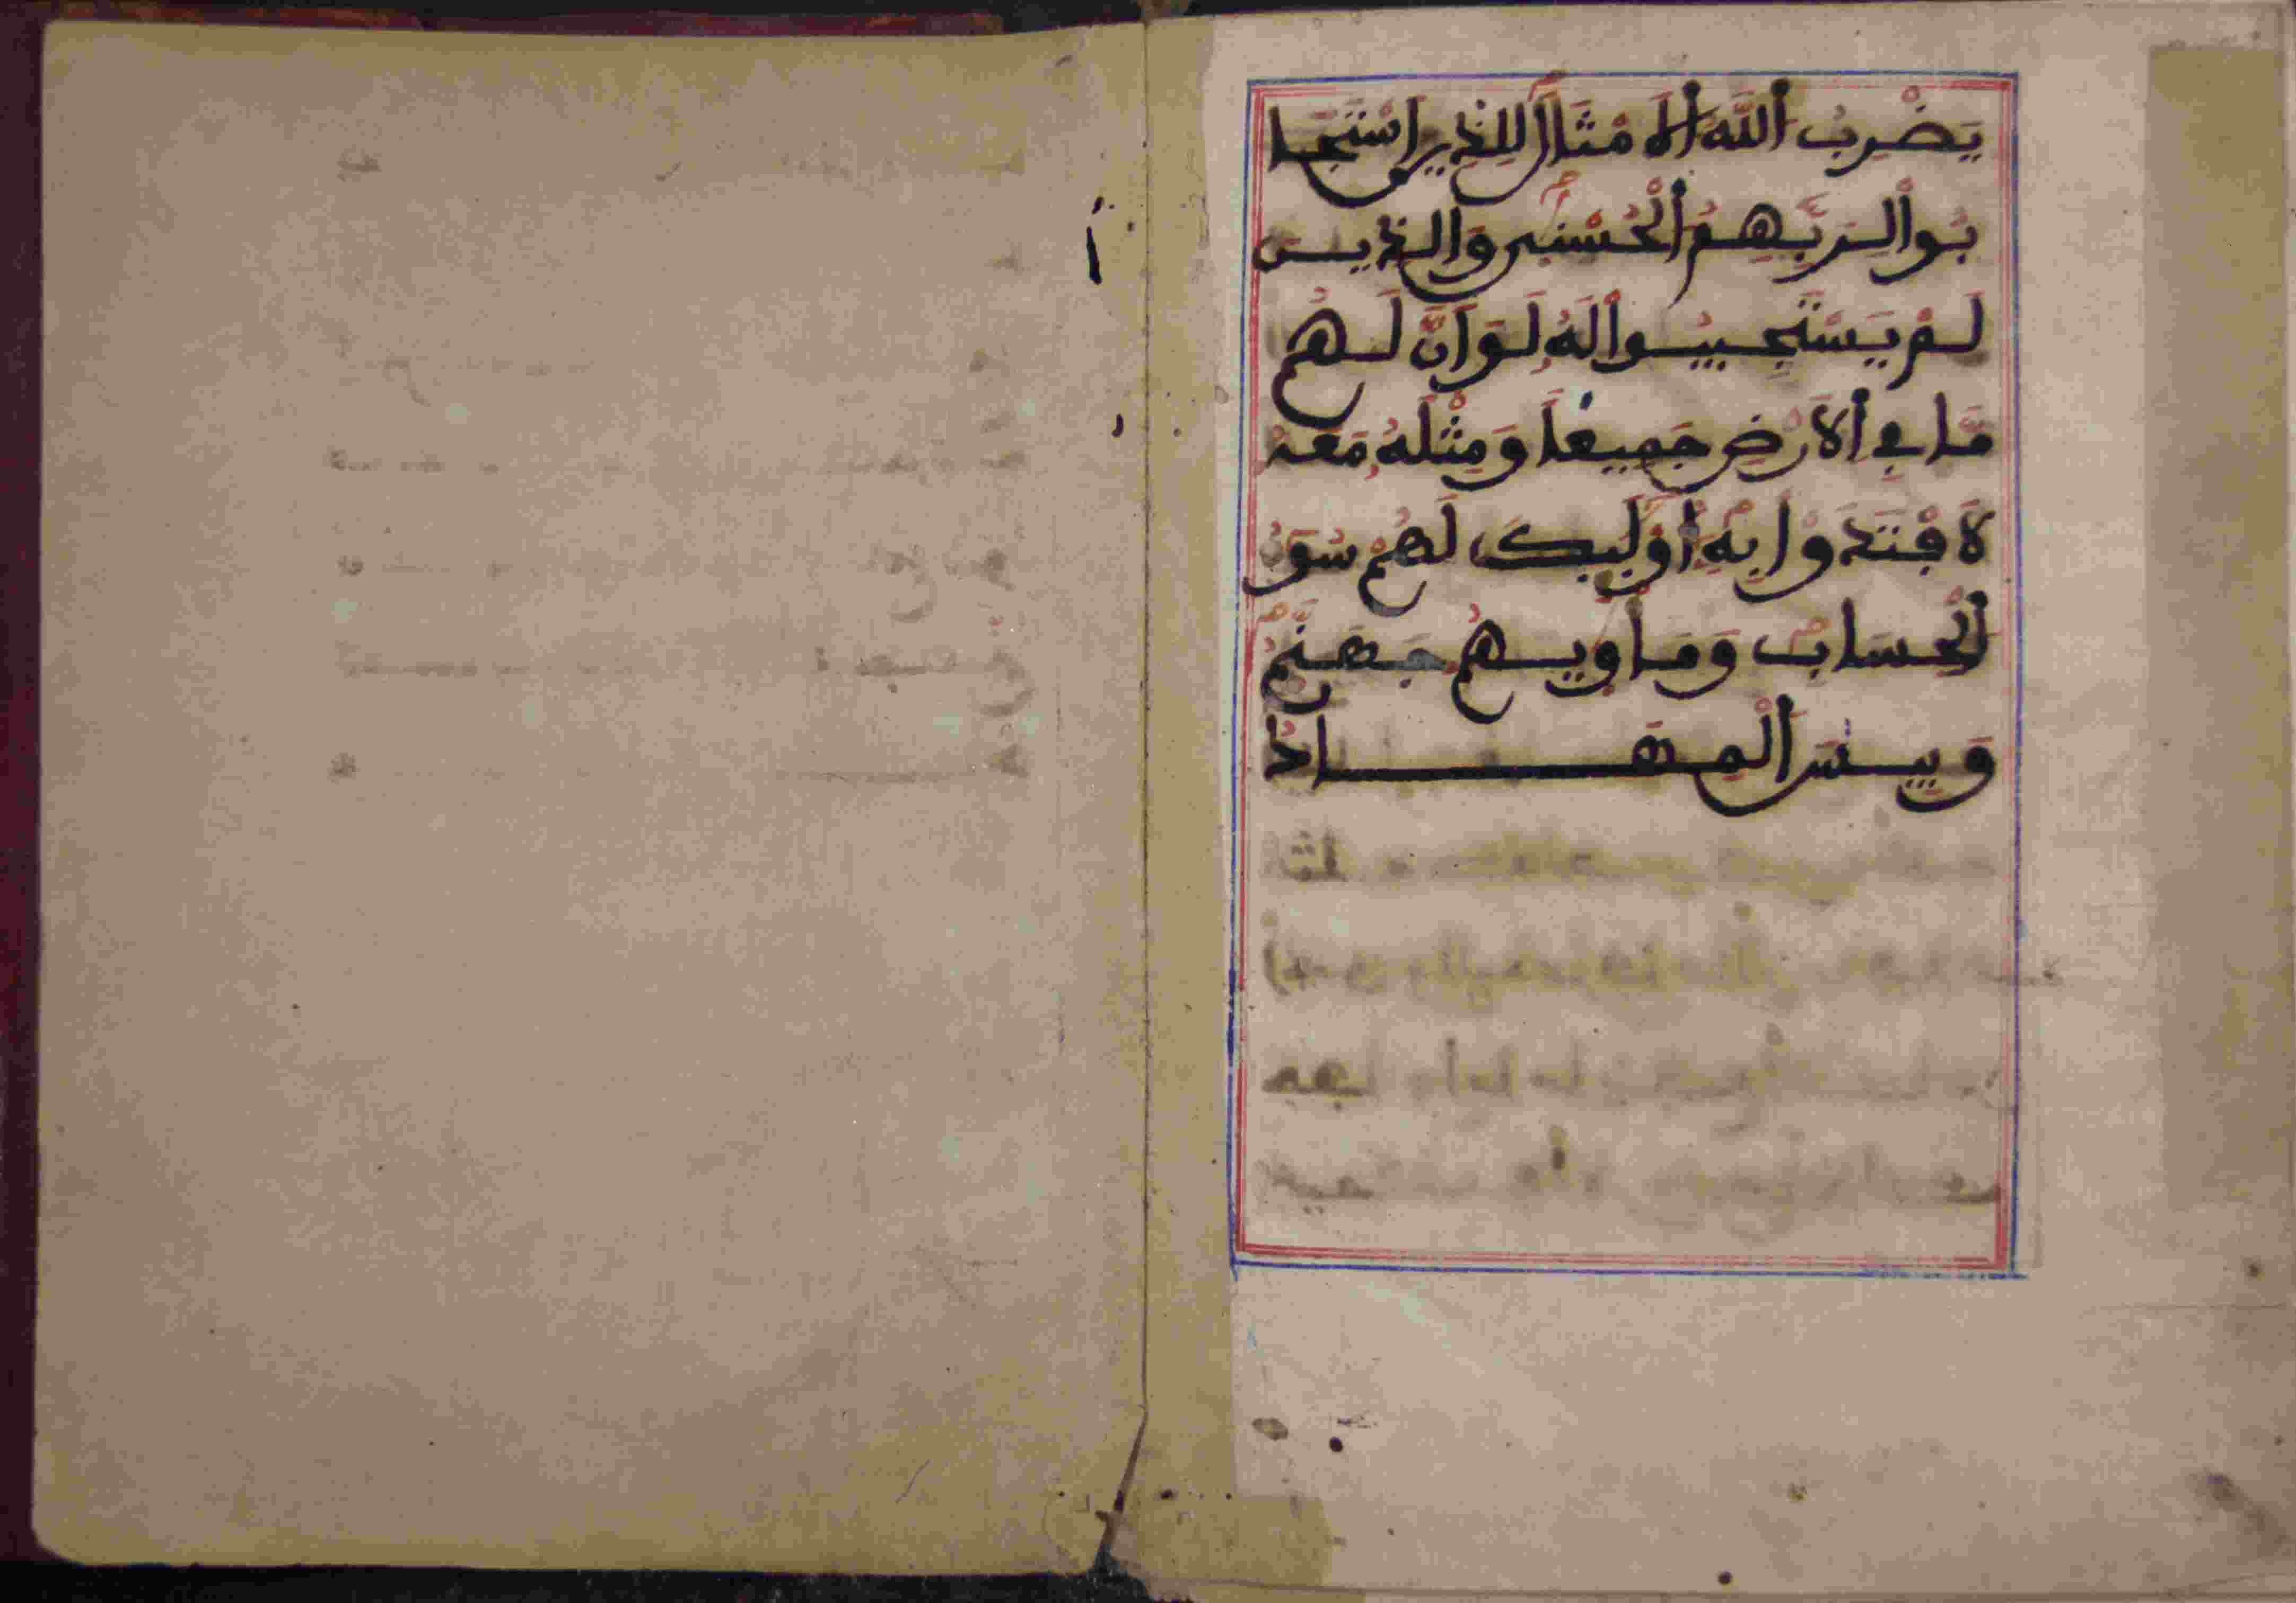 يَضْرِبُ اُللَّهُ اُلَامْثَالَ لِلذِينَ اَسْتَجَا
بُواْ لِرَبِّهِمُ اُلْحُسْنَىٰ وَالذِينَ
لَمْ يَسْتَجِيبُواْ لَهُ لَوَ اَنَّ لَهُم
مَّا فِے اِلَارْضِ جَمِيعاً وَمِثْلَهُ مَعَهُ
لَافْتَدَوْاْ بِهِ أُوْلَٰٓئِكَ لَهُمْ سُوٓءُ
اُلْحِسَابِ وَمَأْوٜيٰهُمْ جَهَنَّمُ
وَبِيسَ اَلْمِهَادُ